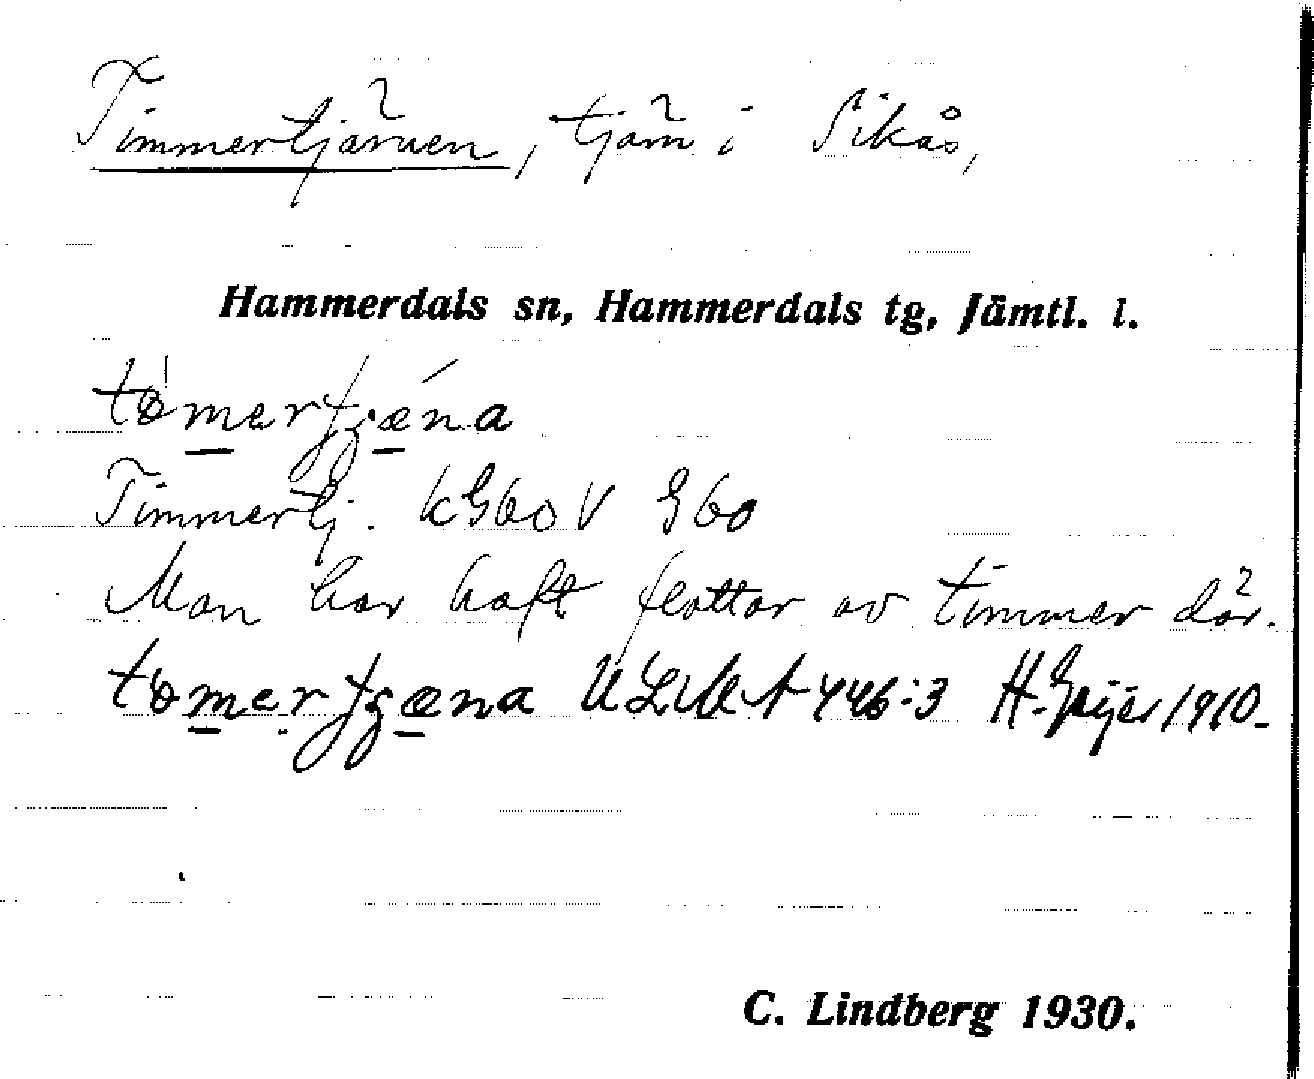 Timmertjärnen, tjärn i Sikås,
Hammerdals sn, Hammerdals tg, Jämtl. l.
tömerʃjæna
Timmertj. kG60 V G60
Man har haft flottar av timmer där.
tömerʃjæna ULMA 446:3 H. Geijer 1910.
C. Lindberg 1930.